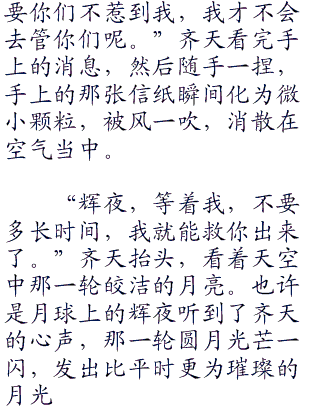 要你们不惹到我，我才不会
去管你们呢。”齐天看完手
上的消息，然后随手一捏，
手上的那张信纸瞬间化为微
小颗粒，被风一吹，消散在
空气当中。
“辉夜，等着我，不要
多长时间，我就能救你出来
了。”齐天抬头，看着天空
中那一轮皎洁的月亮。也许
是月球上的辉夜听到了齐天
的心声，那一轮圆月光芒一
闪，发出比平时更为璀璨的
月光